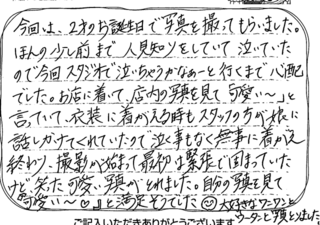 今回は、2才のお誕生日で写真を撮ってもらいました。
ほんの少し前まで人見知りをしていて泣いていた
ので今回スタジオで泣いちゃうかなぁーと行くまで心配
でした。お店に着いて、店内の写真を見て可愛い～」と
言っていて、衣装に着がえる時もスタッフの方が娘に
話しかけてくれていたので泣く事もなく無事に着がえ
終わり、撮影が始まって最初は緊張で固まっていた
けど笑った可愛い写真がとれました。自分の写真を見て
「可愛い～♡」と満足そうでした☺大好きなワーワンと
ウーターンと撮りました
ご記入いただきありがとうございます